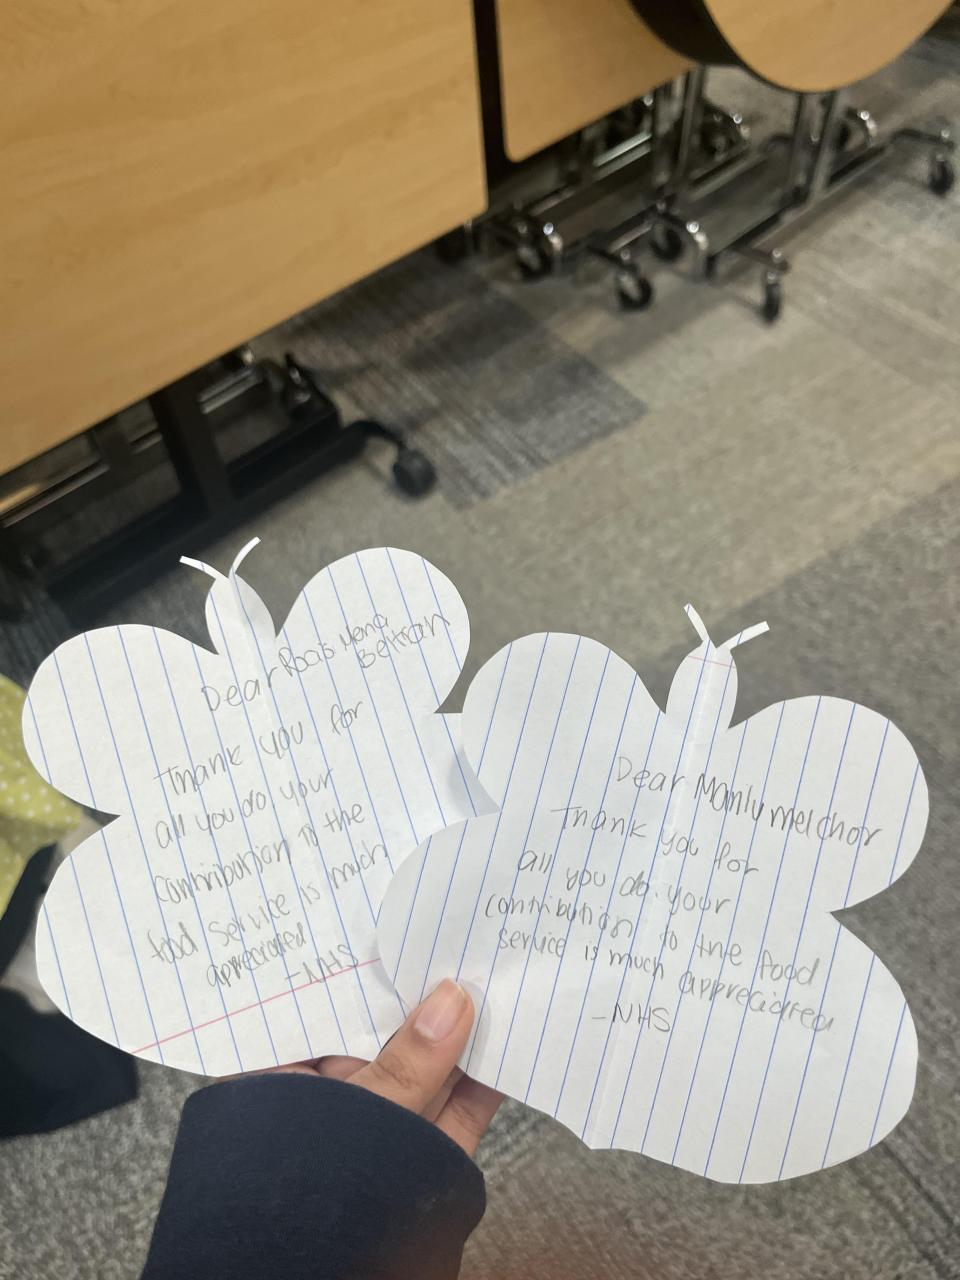 Dear Rocis Mena
Beltran
Thank you for
all you do. your
contribution to the
food service is much
appreciated
-NHS
Dear Manly melchor
Thank you for
all you do. your
contribution to the food
service is much appreciated
-NHS